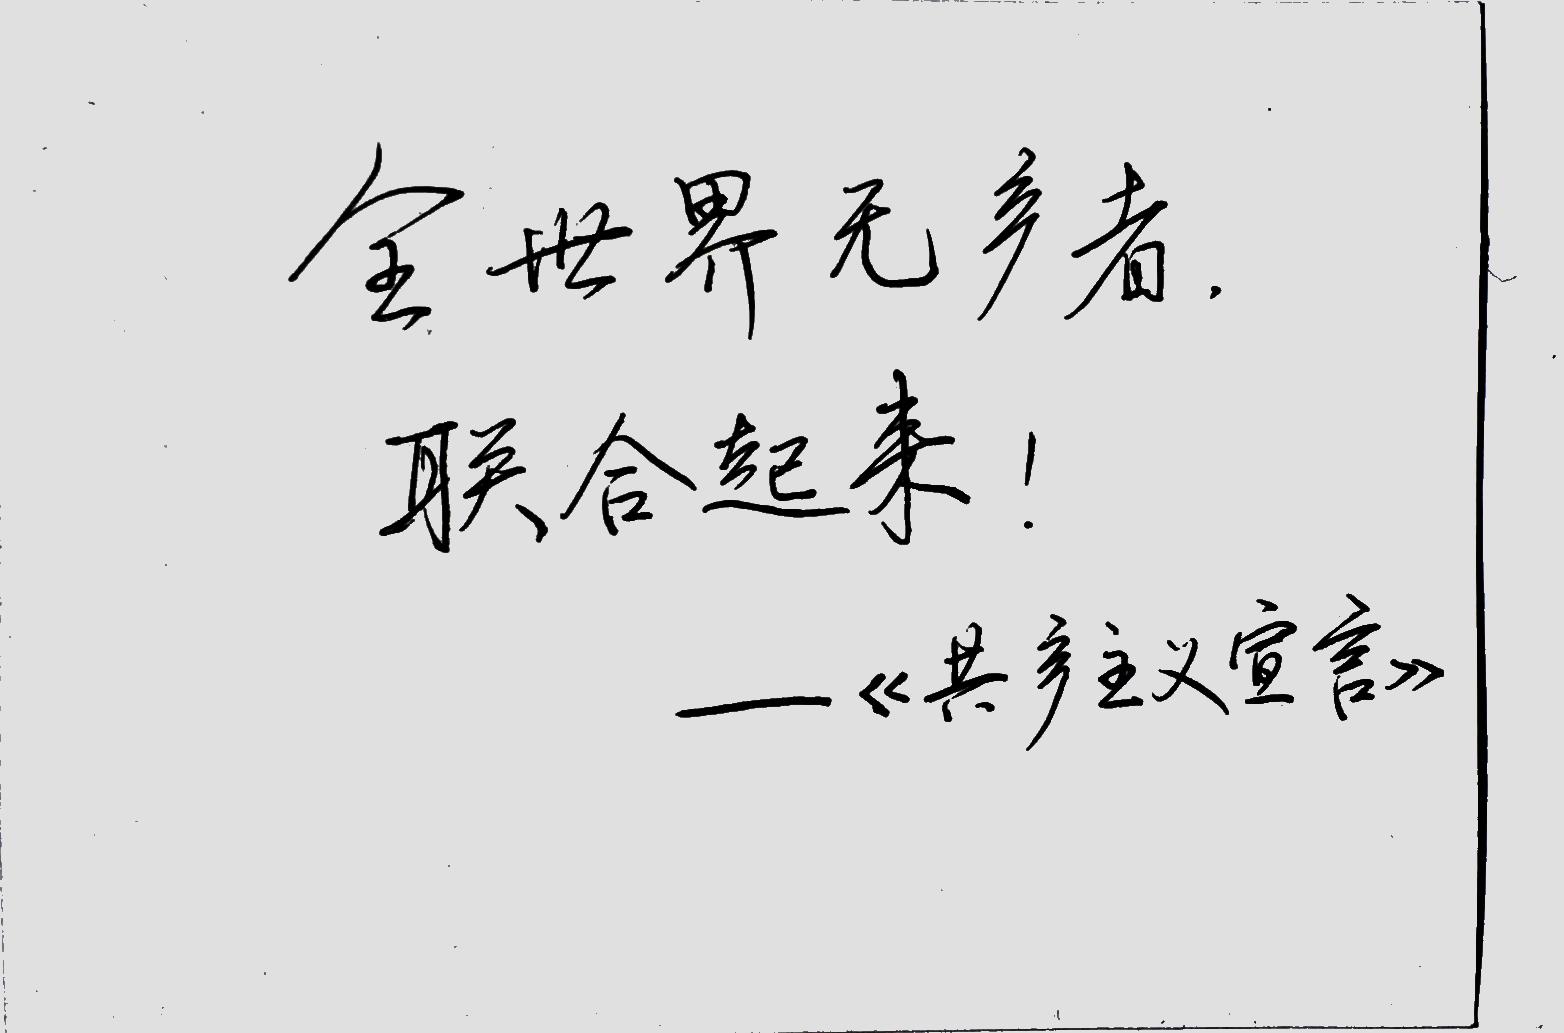 全世界无产者，
联合起来！
——《共产主义宣言》